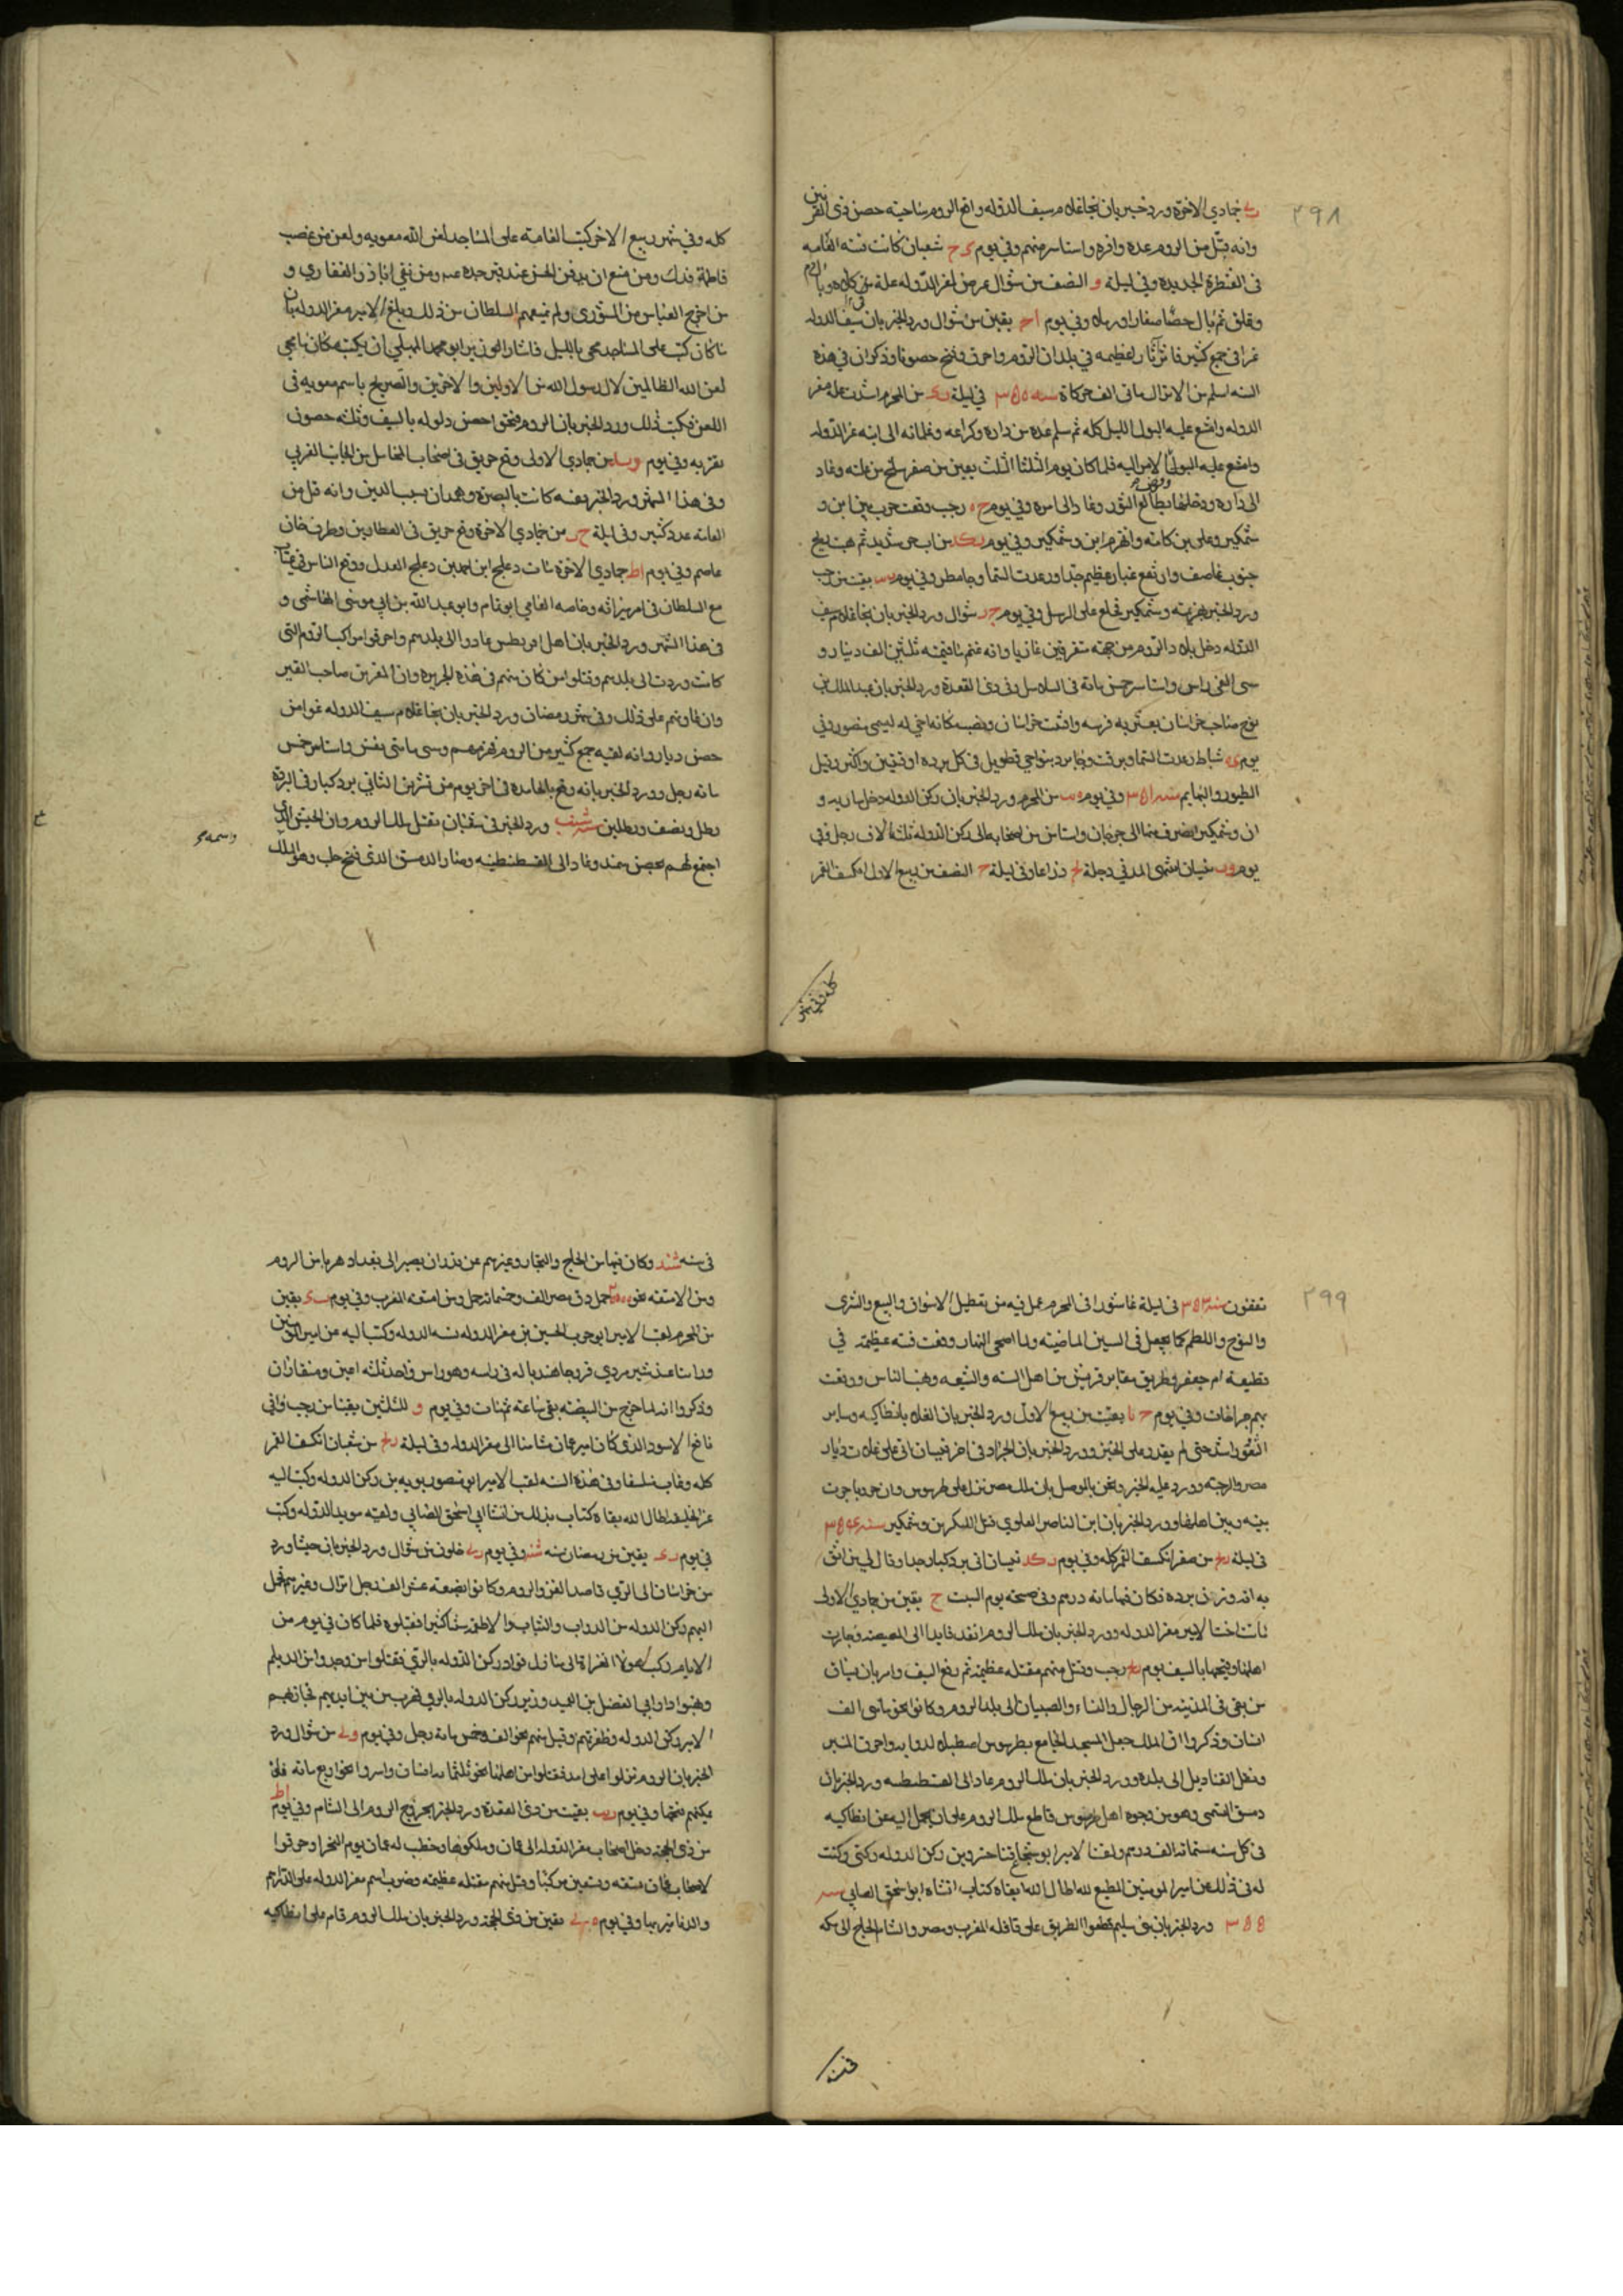 ٢٩٨
جمادي الاخرة ورد خبر بان نجا غلام سيف الدوله واقع الروم بناحيته حصن ذي القرنين
وانه قتل من الروم عده وافره واستاسر منهم وفي يوم شعبان كانت فتنه العامه
في القنطرة الجديده وفي ليلة و النصف من شوال عرض لمعز الدوله علة في كلاه وبال الدم
وقلق ثم بال حصا صغارا ورملا وفي يوم بقين من شوال ورد الخبر بان سيف الدوله
غزا في جمع كثير فاثر اثار عظيمه في بلدان الروم واحرق وفتح حصونا وذكر ان في هذه
السنه اسلم من الاتراك مائتي الف خركاة سنه ٣٥٠ في ليلة من المحرم اشتدت علة معز
الدوله وامتنع عليه البول الليل كله ثم سلم عدة من داره وكراعه وغلمانه الى ابنه عز الدوله
الى داره ودخلها بطالع الثور وعاد الى امره وفي يوم رجب وقعت حرب بين ابن و
شمكير وعلي بن كامه وانهزم ابن وشمكير وفي يوم من اب حر شديد ثم هبت ريح
جنوب عاصف وارتفع غبار عظيم جدا ورعدت السما وجا مطر وفي يوم بقيت من رجب
ورد الخبر بهزيمة وشمكير فخلع على الرسل وفي يوم شوال ورد الخبر بان نجا غلام سيف
الدوله دخل بلاد الروم من جهة ميافارقين غازيا وانه غنم ما قيمته ثلثين الف دينار و
سبى الفي راس واستاسر خمس مائة في السلاسل وفي ذي القعدة ورد الخبر بان عبد الملك بن
نوح صاحب خراسان تعثر به فرسه وافتتنت خراسان ونصب مكانه اخ له يسمى منصور وفي
يوم شباط رعدت السما وبرقت وجا برد بنواحي قطربل في كل برده اوقيتين واكثر وقتل
الطيور والبهايم سنه ٣٥١ وفي يوم من المحرم ورد الخبر بان ركن الدوله دخل ساريه و
ان وشمكير انصرف عنها الى جرجان واستامن من اصحابه الى ركن الدوله ثلثة الاف رجل وفي
يوم نيسان انتهى المد في دجلة ذراعا وفي ليلة النصف من ربيع الاول انكسف القمر
كله وفي شهر
كله وفي شهر ربيع الاخر كتبت العامة على المساجد لعن الله معويه ولعن من غصب
فاطمة فدك ومن منع ان يدفن الحسن عند قبر جده ومن نفى ابا ذر الغفاري و
من اخرج العباس من الشورى ولم يمنعهم السلطان من ذلك وبلغ الامير معز الدوله بان
ما كان كتب على المساجد محي بالليل فاشار الوزير ابو محمد المهلبي ان يكتب مكان ما محي
لعن الله الظالمين لال رسول الله من الاولين والاخرين والتصريح باسم معويه في
اللعن فكتب ذلك وورد الخبر بان الروم فتحوا حصن دلوك بالسيف وثلثه حصون
بقربه وفي يوم من جمادي الاولى وقع حريق في اصحاب المحامل من الجانب الغربي
وفي هذا الشهر ورد الخبر بفتنه كانت بالبصرة وهمدان بسبب الدين وانه قتل من
العامه عدد كثير وفي ليلة من جمادي الاخرة وقع حريق في العطارين وطرف خان
عاصم وفي يوم جمادي الاخرة مات دعلج ابن احمد بن دعلج العدل ووقع الناس في
مع السلطان في امر ميراثه وخاصه القاضي ابو تمام وابو عبد الله بن ابي موسى الهاشمي و
في هذا الشهر ورد الخبر بان اهل اقريطس عادوا الى بلدهم واحرقوا مراكب الروم التي
كانت وردت الى بلدهم وقتلوا من كان منهم في هذه الجزيره وان المعز بن صاحب القيروان
وان عاونهم على ذلك وفي شهر رمضان ورد الخبر بان نجا غلام سيف الدوله غزا من
حصن ديار وانه لقيه جمع كثير من الروم فهزمهم وسبى مائتي نفس واستاسر خمس
مائه رجل وورد الخبر بانه وقع بالجامده في اخر يوم من تشرين الثاني برد كبار في البرده
رطل ونصف ورطلين سنه شنب ورد الخبر في نيسان بقتل ملك الروم وان الجيش الذي
اجتمع لهم بحصن سمند وعاد الى القسطنطينيه وصار الدمستق الذي فتح حلب وهو الملك
واسمه
٢٩٩
نقفور سنه ٣٥٣ في ليلة عاشورا في المحرم عمل فيه من تعطيل الاسواق والبيع والشرى
والنوح واللطم كما يعمل في السنين الماضيه ولما اضحى النهار وقعت فتنه عظيمة في
قطيعة ام جعفر وطريق مقابر قريش بين اهل السنه والشيعه ونهب الناس ووقعت
بهم جراحات وفي يوم بقيت من ربيع الاول ورد الخبر بان الغلا بانطاكيه وساير
الثغور اشتد حتى لم يقدر على الخبز وورد الخبر بان الجراد في اخر نيسان اتى على غلات ديار
مصر والرحبه وورد عليه الخبر ونحن بالموصل بان ملك مصر نزل على طرسوس وان حروبا جرت
بينه وبين اهلها وورد الخبر بان ابن الناصر العلوي قتل لشكر بن وشمكير سنه ٣٥٤
في ليلة من صفر انكسف القمر كله وفي يوم نيسان اتى برد كبار جدا وقال لي من اثق
به انه وزن برده فكان فيها مائه درهم وفي صبيحه يوم السبت بقين من جمادي الاولى
مات اخت الامير معز الدوله وورد الخبر بان ملك الروم انفذ قايدا الى المصيصه فحارب
اهلها وفتحها بالسيف يوم رجب وقتل منهم مقتله عظيمه ثم رفع السيف وامر بان يساق
من بقي في المدينه من الرجال والنساء والصبيان الى بلد الروم وكانوا نحو مائتي الف
انسان وذكروا ان الملك جعل المسجد الجامع بطرسوس اصطبلا لدوابه واحرق المنبر
ونقل القناديل الى بلده وورد الخبر بان ملك الروم عاد الى القسطنطينيه ورد الخبر بان
رسق النسمى وهو من وجوه اهل طرسوس قاطع ملك الروم على ان يحمل اليه عن انطاكيه
في كل سنه ستمائة الف درهم ولقب الامير ابو شجاع فناخسرو بن ركن الدوله وكني وكتب
له في ذلك عن امير المومنين المطيع لله اطال الله بقاه كتاب انشاه ابو اسحق الصابي سنه
٣٥٥ ورد الخبر بان بني سليم قطعوا الطريق على قافله المغرب ومصر والشام الحاج الى مكه
في سنه
في سنه شند وكان فيها من الحاج والتجار وغيرهم من يريد ان يصير الى بغداد هربا من الروم
ومن الامتعه نحو حمل دق مصر الف وخمسمائة حمل ومن امتعه المغرب وفي يوم بقين
من المحرم لقب الامير ابو حرب الحبشي بن معز الدوله سند الدوله وكتب اليه عن امير المومنين
وذكروا انه لما خرج من البيضه بقي ساعة ثم مات وفي يوم و للثلثين بقيا من رجب وافى
نافع الاسود الذي كان امير عمان مستامنا الى معز الدوله وفي ليلة من شعبان انكسف القمر
كله وغاب منكسفا وفي هذه السنه لقب الامير ابو منصور بويه بن ركن الدوله وكتب اليه
عن الخليفه اطال الله بقاه كتاب بذلك من انشا ابي اسحق الصابي ولقبه مويد الدوله وكتب
في يوم بقين من رمضان سنه شند وفي يوم خلون من شوال ورد الخبر بان جيشا ورد
من خراسان الى الري قاصدا لغزو الروم وكانوا بضعه عشر الف رجل اتراك وغيرهم فحمل
اليهم ركن الدوله من الدواب والثياب والاطعمه شيا كثيرا فقبلوه فلما كان في يوم من
الايام ركب هولا الغزاة الى منازل قواد ركن الدوله بالري فقتلوا من وجدوا من الديلم
ونهبوا دار ابي الفضل بن العميد وزير ركن الدوله بالري فهرب من بين ايديهم فحاربهم
الامير ركن الدوله وظفر بهم وقتل منهم نحو الف وخمس مائه رجل وفي يوم من شوال ورد
الخبر بان الروم نزلوا على امد فقتلوا من اهلها نحو ثلثمائه انسان واسروا نحو اربع مائه فلم
يمكنهم فتحها وفي يوم بقيت من ذي القعدة ورد الخبر بخروج الروم الى الشام وفي يوم
من ذي الحجه دخل اصحاب معز الدوله الى عمان وملكوها وخطب له بعمان يوم النحر واحرقوا
لاصحاب عمان تسعه وتسعين مركبا وقتل منهم مقتله عظيمه وضرب اسم معز الدوله على الدراهم
والدنانير بها وفي يوم بقين من ذي الحجة ورد الخبر بان ملك الروم قام على انطاكيه